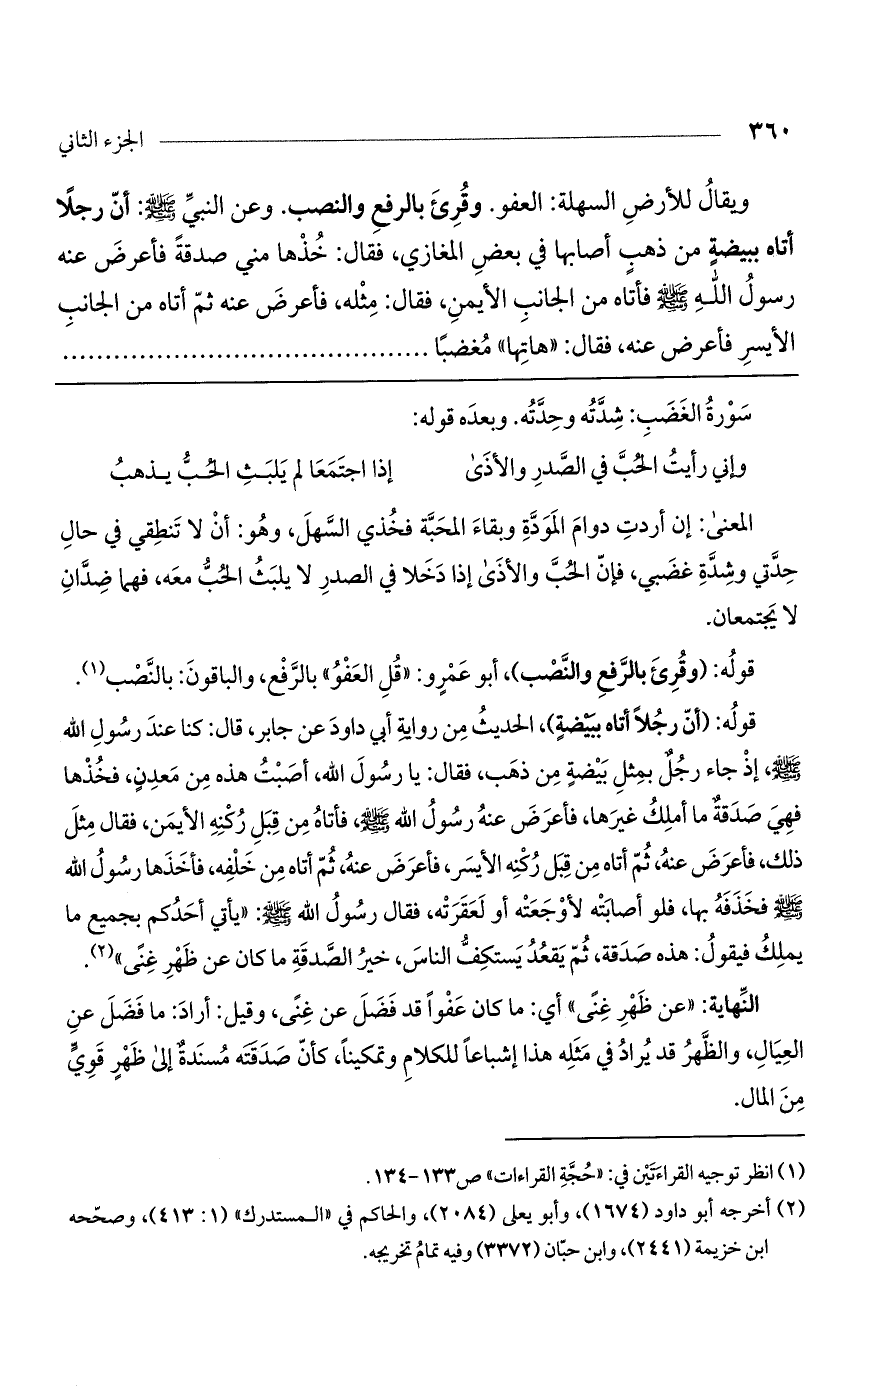 ٣٦٠ الجزء الثاني
ويقالُ للأرضِ السهلة: العفو. وقُرِئَ بالرفعِ والنصب. وعن النبيِّ ﷺ: أنّ رجلًا
أتاه ببيضةٍ من ذهبٍ أصابها في بعضِ المغازي، فقال: خُذْها مني صدقةً فأعرضَ عنه
رسولُ اللهِ ﷺ فأتاه من الجانبِ الأيمنِ، فقال: مِثْله، فأعرضَ عنه ثمّ أتاه من الجانبِ
الأيسرِ فأعرض عنه، فقال: «هاتِها» مُغضبًا ............................................
سَوْرةُ الغَضَبِ: شِدَّتُه وحِدَّتُه. وبعدَه قوله:
وإني رأيتُ الحُبَّ في الصَّدرِ والأذَىٰ إذا اجتَمَعَا لم يَلبَثِ الحُبُّ يذهبُ
المعنىٰ: إن أردتِ دوامَ المَوَدَّةِ وبقاءَ المحَبَّة فخُذي السَّهلَ، وهُو: أنْ لا تَنطِقي في حالِ
حِدَّتي وشِدَّةِ غضَبي، فإنّ الحُبَّ والأذَىٰ إذا دَخَلا في الصدرِ لا يلبَثُ الحُبُّ معَه، فهما ضِدَّانِ
لا يَجتمعان.
قولُه: (وقُرِئَ بالرَّفعِ والنَّصْب)، أبو عَمْرٍو: «قُلِ العَفْوُ» بالرَّفْع، والباقونَ: بالنَّصْب(١).
قولُه: (أنّ رجُلاً أتاه ببَيْضةٍ)، الحديثُ مِن روايةِ أبي داودَ عن جابر، قال: كنا عندَ رسُولِ الله
ﷺ، إذْ جاء رجُلٌ بمِثلِ بَيْضةٍ مِن ذهَب، فقال: يا رسُولَ الله، أصَبْتُ هذه مِن مَعدِنٍ، فخُذْها
فهِيَ صَدَقةٌ ما أملِكُ غيرَها، فأعرَضَ عنهُ رسُولُ الله ﷺ، فأتاهُ مِن قِبَلِ رُكْنِهِ الأيمَن، فقال مِثلَ
ذلك، فأعرَضَ عنهُ، ثُمّ أتاه مِن قِبَلِ رُكْنِه الأيسَر، فأعرَضَ عنهُ، ثُمّ أتاه مِن خَلْفِه، فأخَذَها رسُولُ الله
ﷺ فخَذَفَهُ بها، فلو أصابَتْه لأوْجَعَتْه أو لَعَقَرَتْه، فقال رسُولُ الله ﷺ: «يأتي أحَدُكم بجميعِ ما
يملِكُ فيقولُ: هذه صَدَقة، ثُمّ يَقعُدُ يَستكِفُّ الناسَ، خيرُ الصَّدقَةِ ما كان عن ظَهْرِ غِنًى»(٢).
النِّهاية: «عن ظَهْرِ غِنًى» أي: ما كان عَفْواً قد فَضَلَ عن غِنًى، وقيل: أرادَ: ما فَضَلَ عنِ
العِيَالِ، والظَّهرُ قد يُرادُ في مَثَلِه هذا إشباعاً للكلامِ وتمكيناً، كأنّ صَدَقَتَه مُسنَدةٌ إلىٰ ظَهْرٍ قَوِيٍّ
مِنَ المال.
(١) انظر توجيه القراءَتَيْن في: «حُجَّةِ القراءات» ص١٣٣-١٣٤.
(٢) أخرجه أبو داود (١٦٧٤)، وأبو يعلى (٢٠٨٤)، والحاكم في «المستدرك» (١: ٤١٣)، وصحّحه
ابن خزيمة (٢٤٤١)، وابن حبّان (٣٣٧٢) وفيه تمامُ تخريجه.